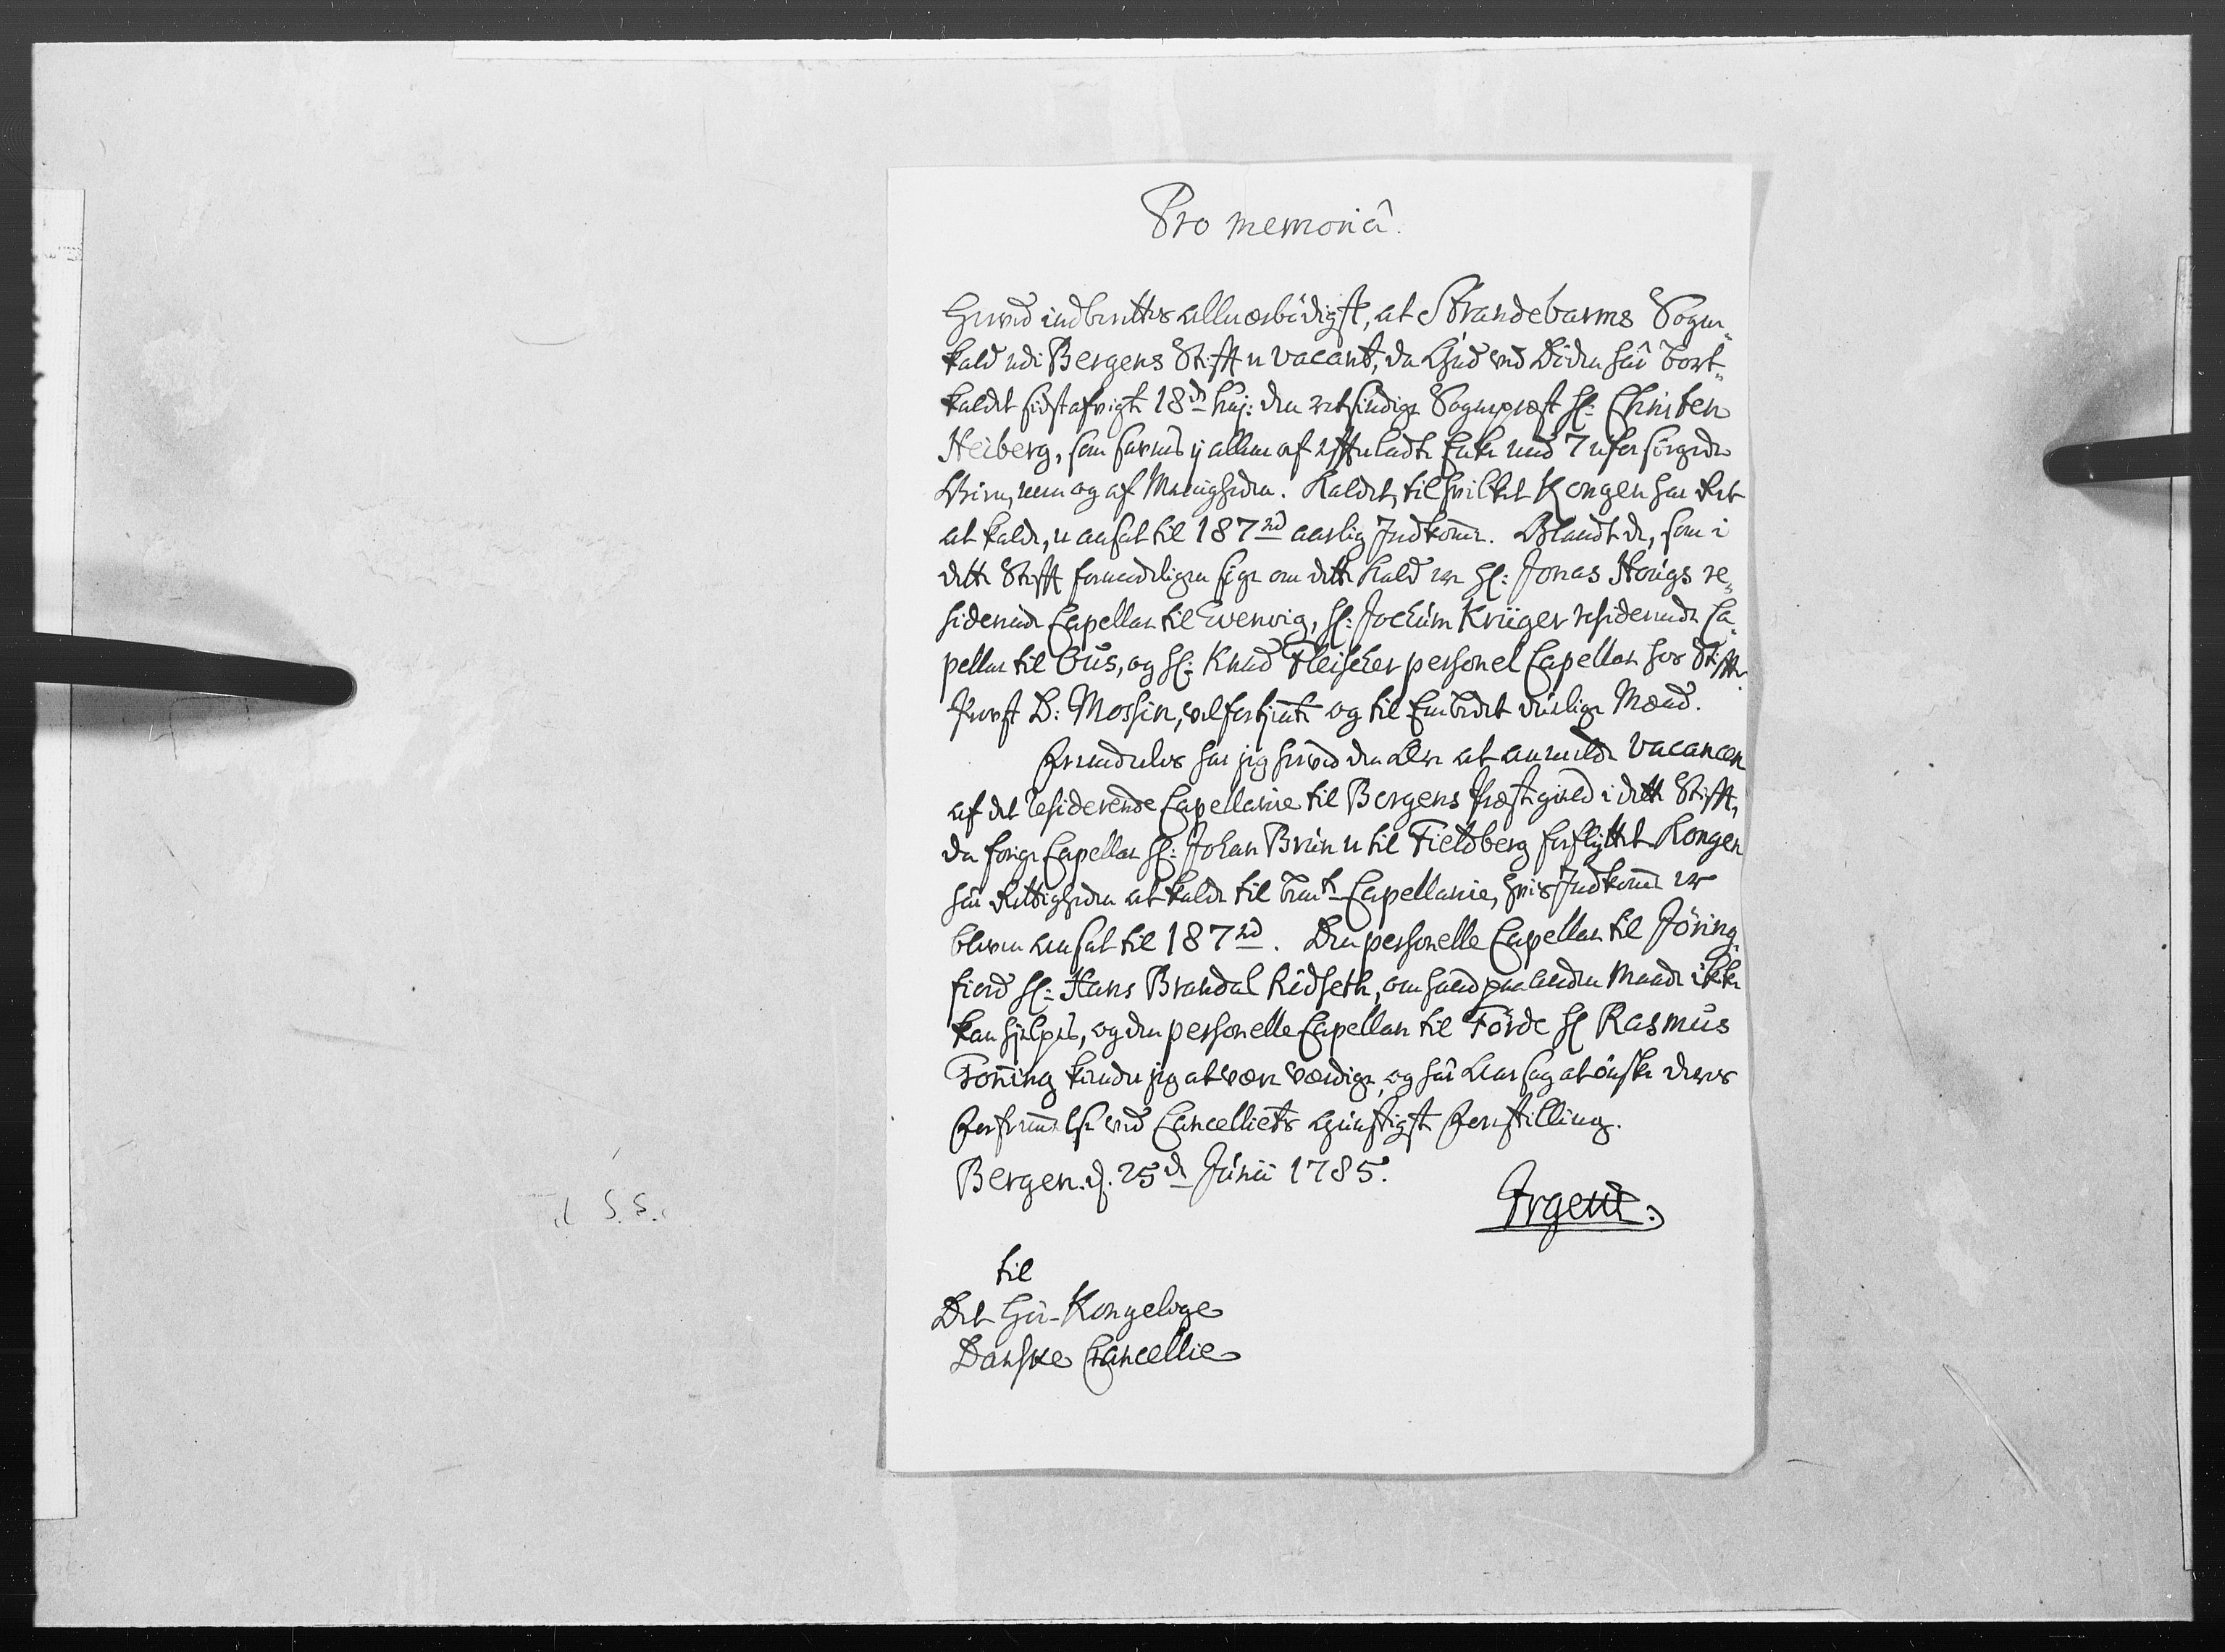 Pro memoriâ.
Herved indberettes allerærbødigst, at Strandebarms Sogne-
kald udi Bergens Stift er vacant, da Gud ved Døden har bort-
kaldet sidstafvigte 18de huj: den retsindige Sognepræst Hr: Christen
Heiberg, som savnes ej allene af efterladte Enke med 7 uforsørgede
Børn, men og af Menigheden. Kaldet, til hvilket Kongen har Ret
at kalde, er ansat til 187 rd aarlig Indkomme. Blandt de, som i
dette Stift fornemmeligen søge om dette Kald ere Hr: Jonas Kongs re-
siderende Capellan til Evenvig, Hr: Jochum Krüger residerende Ca-
pellan til Ous, og Hr: Knud Fleischer personel Capellan hos Stifts-
Provst D: Mossin, velfortjente og til Embedet duelige Mænd.
Fremdeles har jeg herved den Ære at anmelde Vacancen
af det residerende Capellanie til Borgens Præstegield i dette Stift,
da forige Capellan Hr: Johan Brun er til Fieldberg forflyttet. Kongen
har Rettigheden at kalde til bemte Capellanie, hvis Indkomme er
bleven ansat til 187 rd. Den personelle Capellan til Jöring-
fiord Hr: Hans Brandal Rödseth, om hand paa anden Maade ikke
kan hjelpes, og den personelle Capellan til Förde Hr Rasmus
Fonning kiender jeg at være værdige, og har Aarsag at ønske deres
Forfremmelse ved Cancelliets gunstigste Forestilling.
Bergen. d. 25de Junii 1785.
Irgens.
til
Det Høi-Kongelige
Danske Cancellie